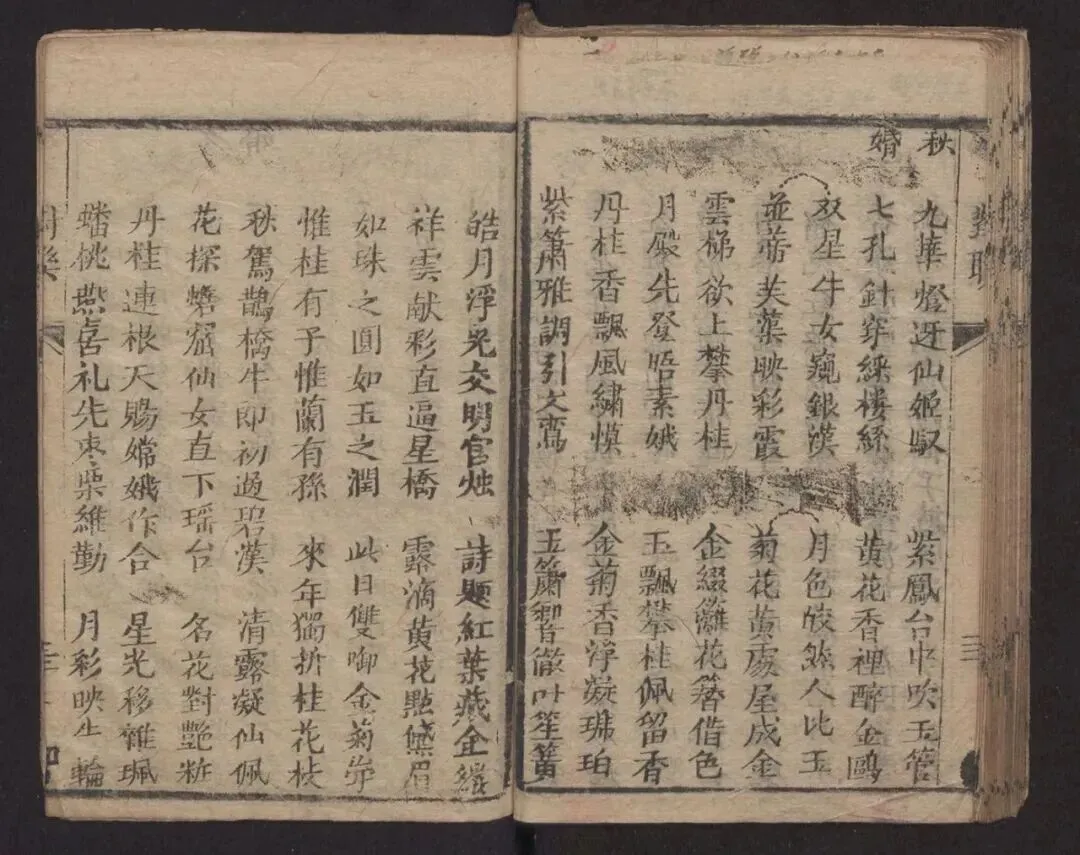 秋
婚
對聯
九華燈迓仙姬馭 紫鳳台中吹玉管
七孔針穿綵楼絲 黄花香裡醉金鷗
双星牛女窺銀漢 月色皎然人比玉
並蒂芙蕖映彩霞 菊花黄處屋成金
雲梯欲上攀丹桂 金綴籬花簪借色
月殿先登晤素娥 玉飄攀桂佩留香
丹桂香飄風繡幙 金菊香浮凝琥珀
紫箫雅調引文鸞 玉簫響徹叶笙簧
三
皓月浮光交明官烛 詩題紅葉藏金縷
祥雲献彩直逼星橋 露滴黄花點黛眉
如珠之圓如玉之潤 此日雙啣金菊蕚
惟桂有子惟蘭有孫 來年獨折桂花枝
秋駕鵲橋牛即初過碧漢 清露凝仙佩
花探蟾窟仙女直下瑶台 名花對艷粧
丹桂連根天賜嫦娥作合 星光移雜珮
蟠桃燕喜礼先枣栗維勤 月彩映生輪